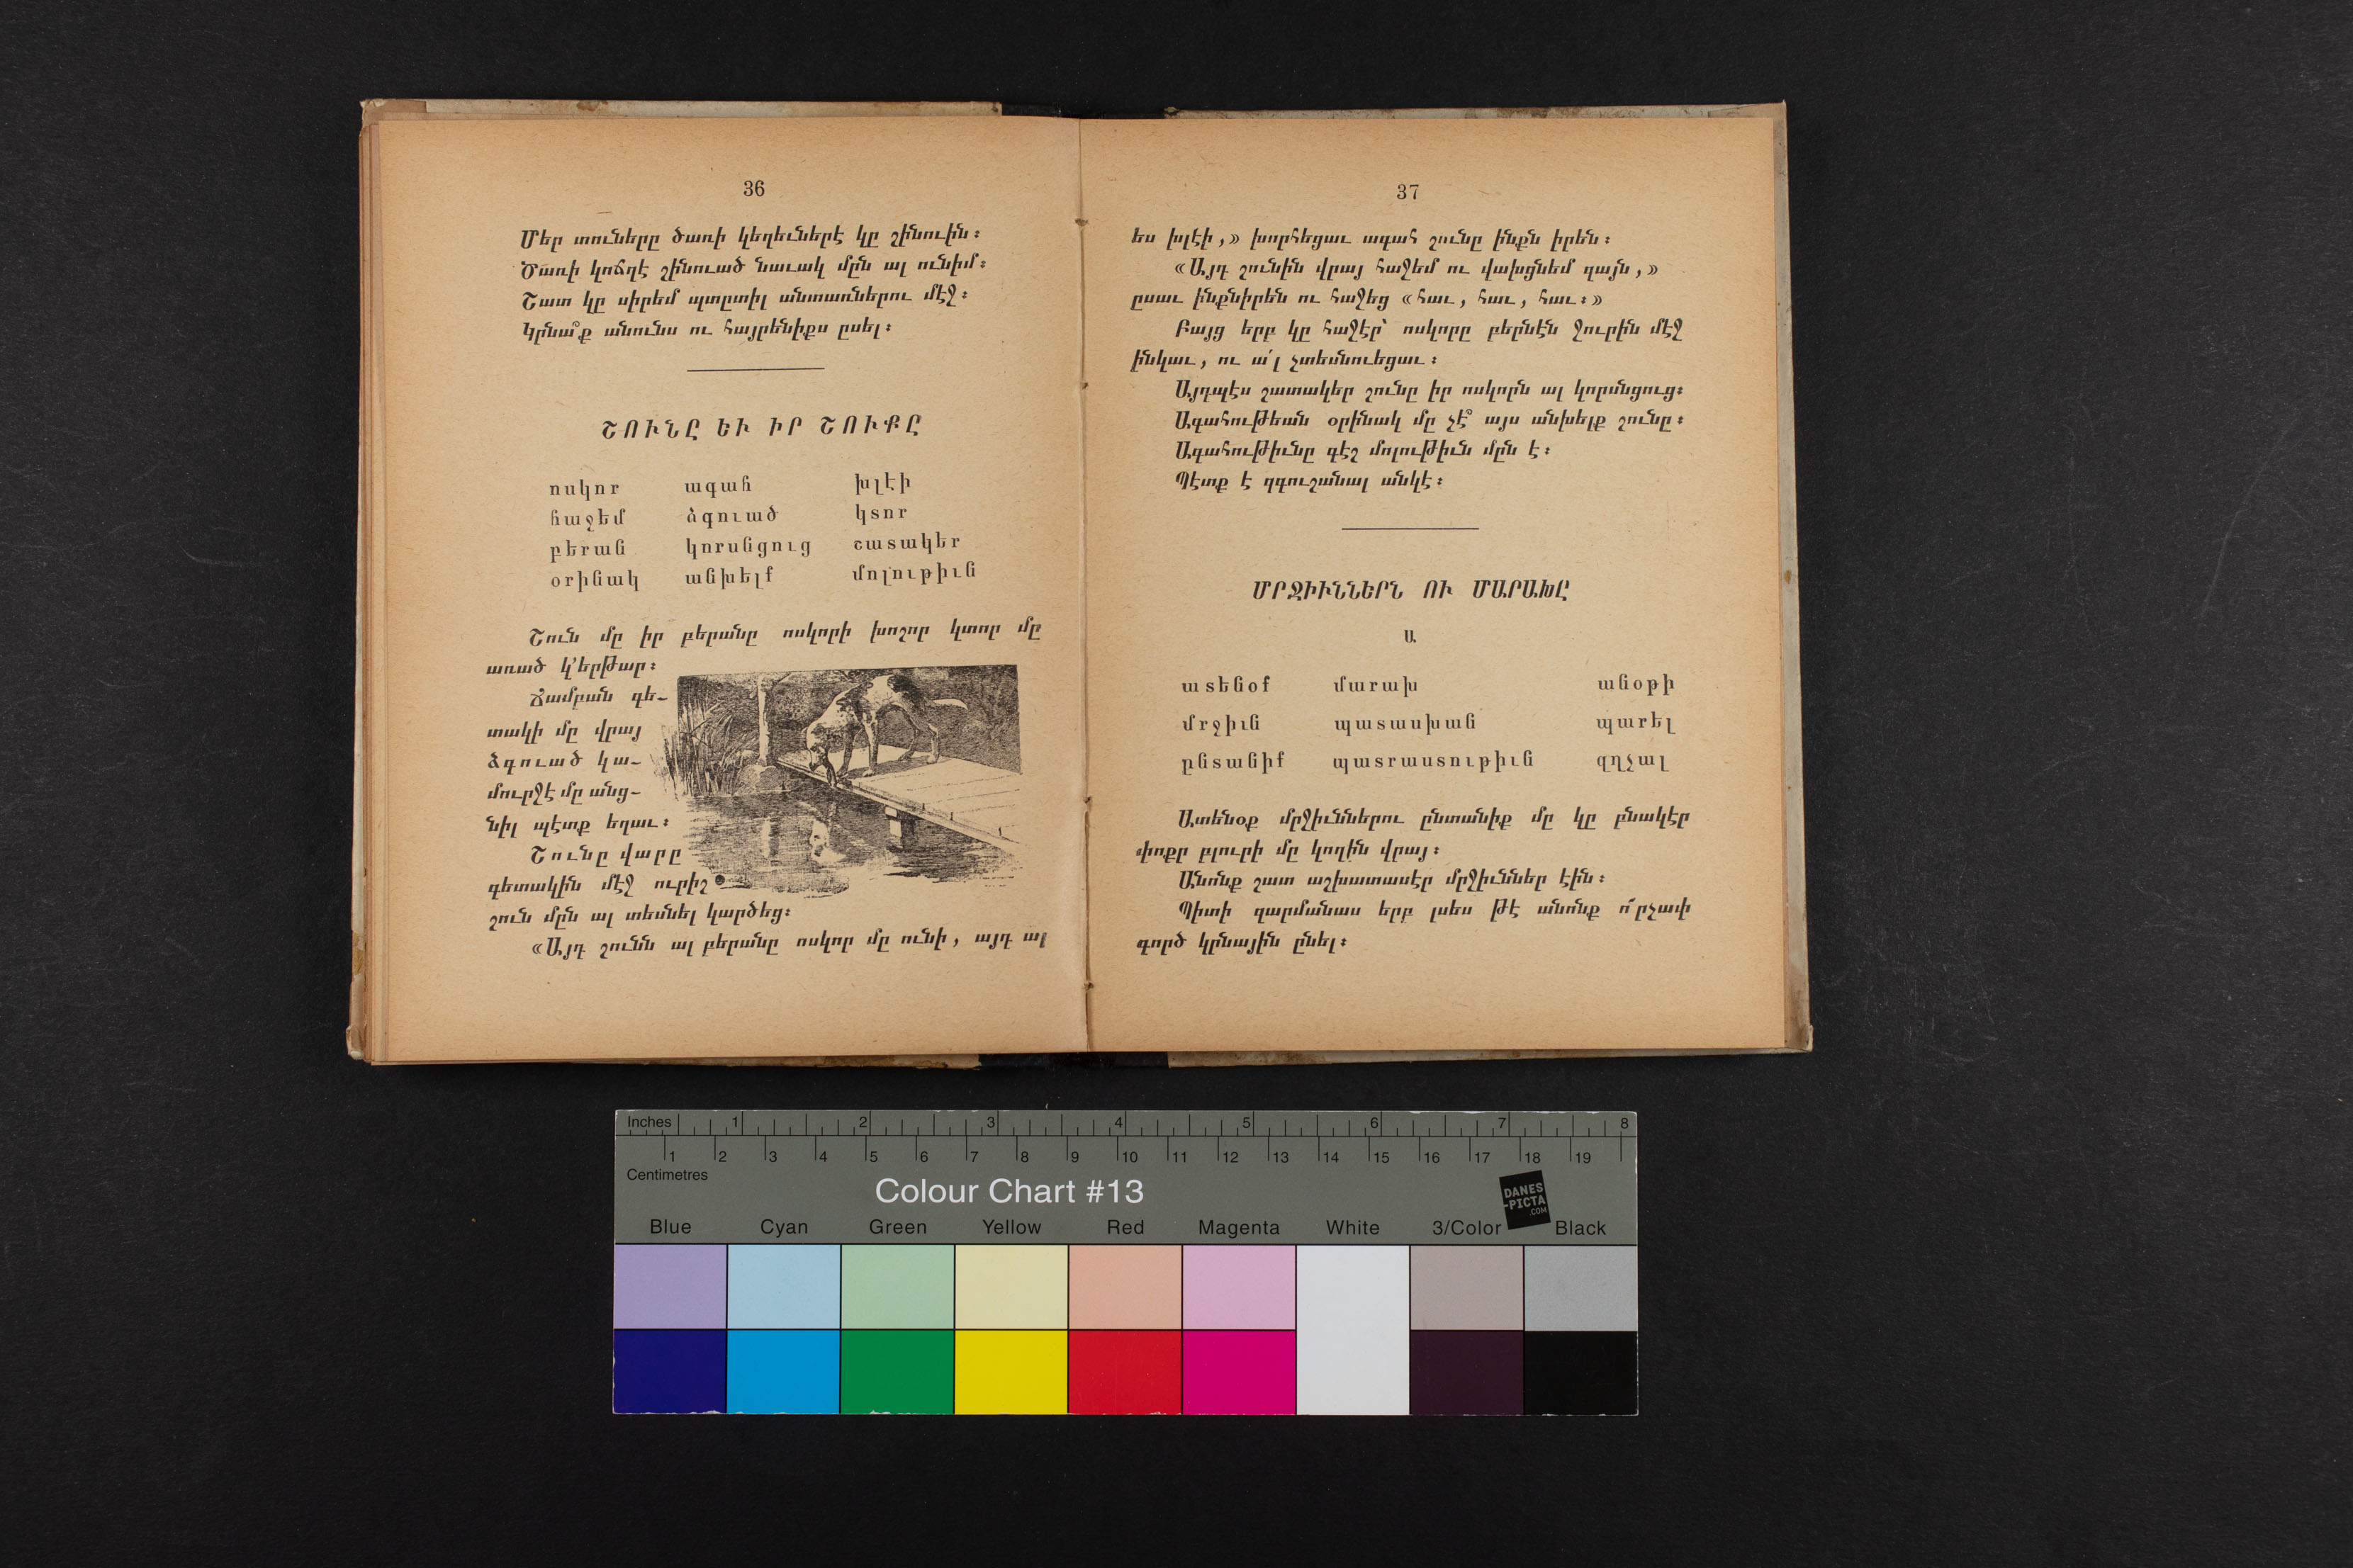 36
Մեր տուները ծառի կեղեւներէ կը շինուին։
Ծառի կոճղէ շինուած նաւակ մըն ալ ունիմ։
Շատ կը սիրեմ պտըտիլ անտառներու մէջ։
Կրնա՞ք անունս ու հայրենիքս ըսել։
ՇՈՒՆԸ ԵՒ ԻՐ ՇՈՒՔԸ
ոսկոր ագահ խլէի
հաջեմ ձգուած կտոր
բերան կորսնցուց շատակեր
օրինակ անխելք մոլութիւն
Շուն մը իր բերանը ոսկորի խոշոր կտոր մը
առած կ՚երթար։
Ճամբան գե-
տակի մը վրայ
ձգուած կա-
մուրջէ մը անց-
նիլ պէտք եղաւ։
Շունը վարը
գետակին մէջ ուրիշ
շուն մըն ալ տեսնել կարծեց։
«Այդ շունն ալ բերանը ոսկոր մը ունի, այդ ալ
37
ես խլէի,» խորհեցաւ ագահ շունը ինքն իրեն։
«Այդ շունին վրայ հաջեմ ու վախցնեմ զայն,»
ըսաւ ինքնիրեն ու հաջեց «հաւ, հաւ, հաւ։»
Բայց երբ կը հաջէր՝ ոսկորը բերնէն ջուրին մէջ
ինկաւ, ու ա՛լ չտեսնուեցաւ։
Այդպէս շատակեր շունը իր ոսկորն ալ կորսնցուց։
Ագահութեան օրինակ մը չէ՞ այս անխելք շունը։
Ագահութիւնը գէշ մոլութիւն մըն է։
Պէտք է զգուշանալ անկէ։
ՄՐՋԻՒՆՆԵՐՆ ՈՒ ՄԱՐԱԽԸ
Ա
ատենօք մարախ անօթի
մրջիւն պատասխան պարել
ընտանիք պատրաստութիւն զղչալ
Ատենօք մրջիւններու ընտանիք մը կը բնակէր
փոքր բլուրի մը կողին վրայ։
Անոնք շատ աշխատասէր մրջիւններ էին։
Պիտի զարմանաս երբ լսես թէ անոնք ո՜րչափ
գործ կրնային ընել։
Inches 1 2 3 4 5 6 7 8
1 2 3 4 5 6 7 8 9 10 11 12 13 14 15 16 17 18 19
Centimetres
Colour Chart #13
DANES
-PICTA
.COM
Blue Cyan Green Yellow Red Magenta White 3/Color Black